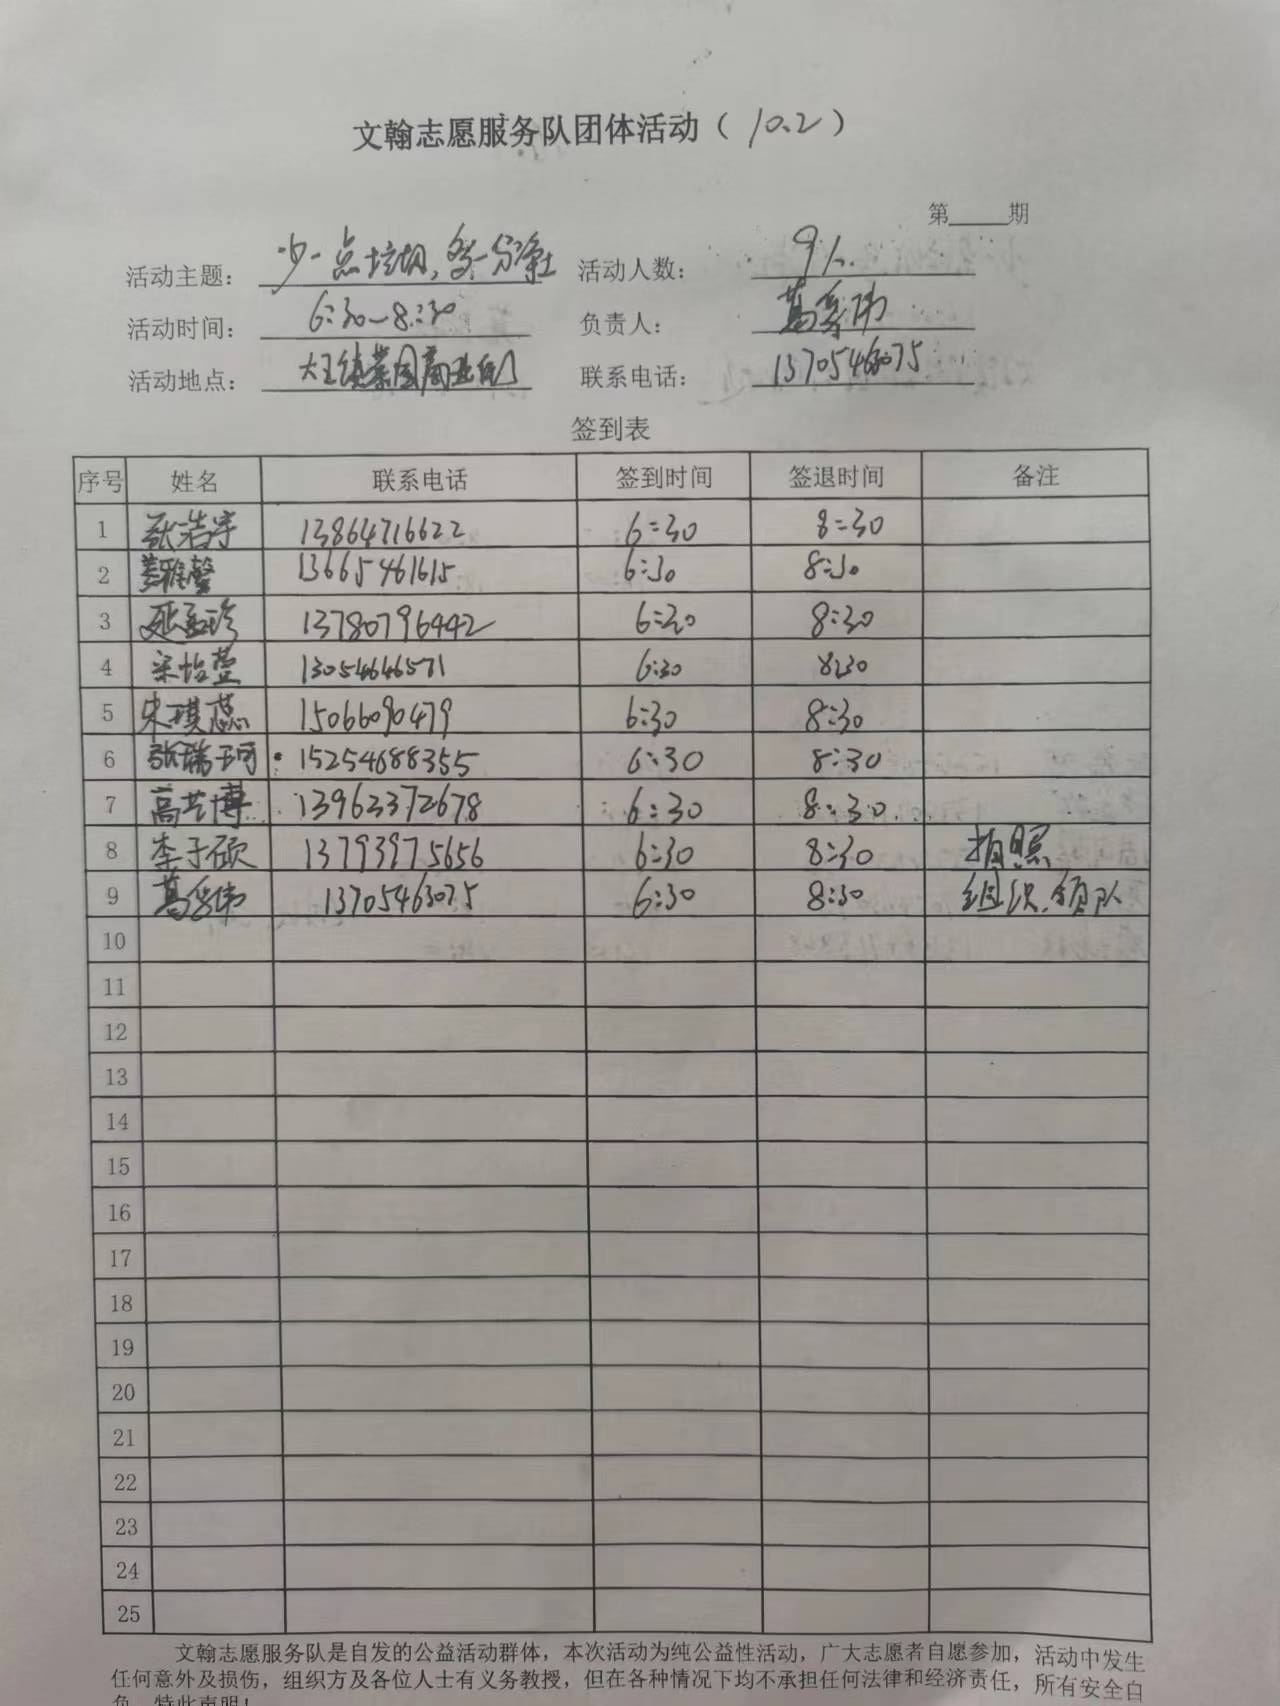 文翰志愿服务队团体活动（10.2）
第____期
活动主题：少一点垃圾，多一分净土 活动人数：9人
活动时间：6:30—8:30 负责人：葛秀伟
活动地点：大王镇菜园商业街 联系电话：13705463075
签到表
序号 姓名 联系电话 签到时间 签退时间 备注
1 张浩宇 13864716622 6:30 8:30
2 姜雅馨 13665461615 6:30 8:30
3 延孟珍 13780796442 6:30 8:30
4 宋怡萱 13054646571 6:30 8:30
5 宋琪蕊 15066090479 6:30 8:30
6 张瑞珂 15254688355 6:30 8:30
7 高艺博 13963372678 6:30 8:30
8 李子硕 13793975656 6:30 8:30 拍照
9 葛秀伟 13705463075 6:30 8:30 组织、领队
10
11
12
13
14
15
16
17
18
19
20
21
22
23
24
25
文翰志愿服务队是自发的公益活动群体，本次活动为纯公益性活动，广大志愿者自愿参加，活动中发生
任何意外及损伤，组织方及各位人士有义务教授，但在各种情况下均不承担任何法律和经济责任，所有安全自
负，特此声明！